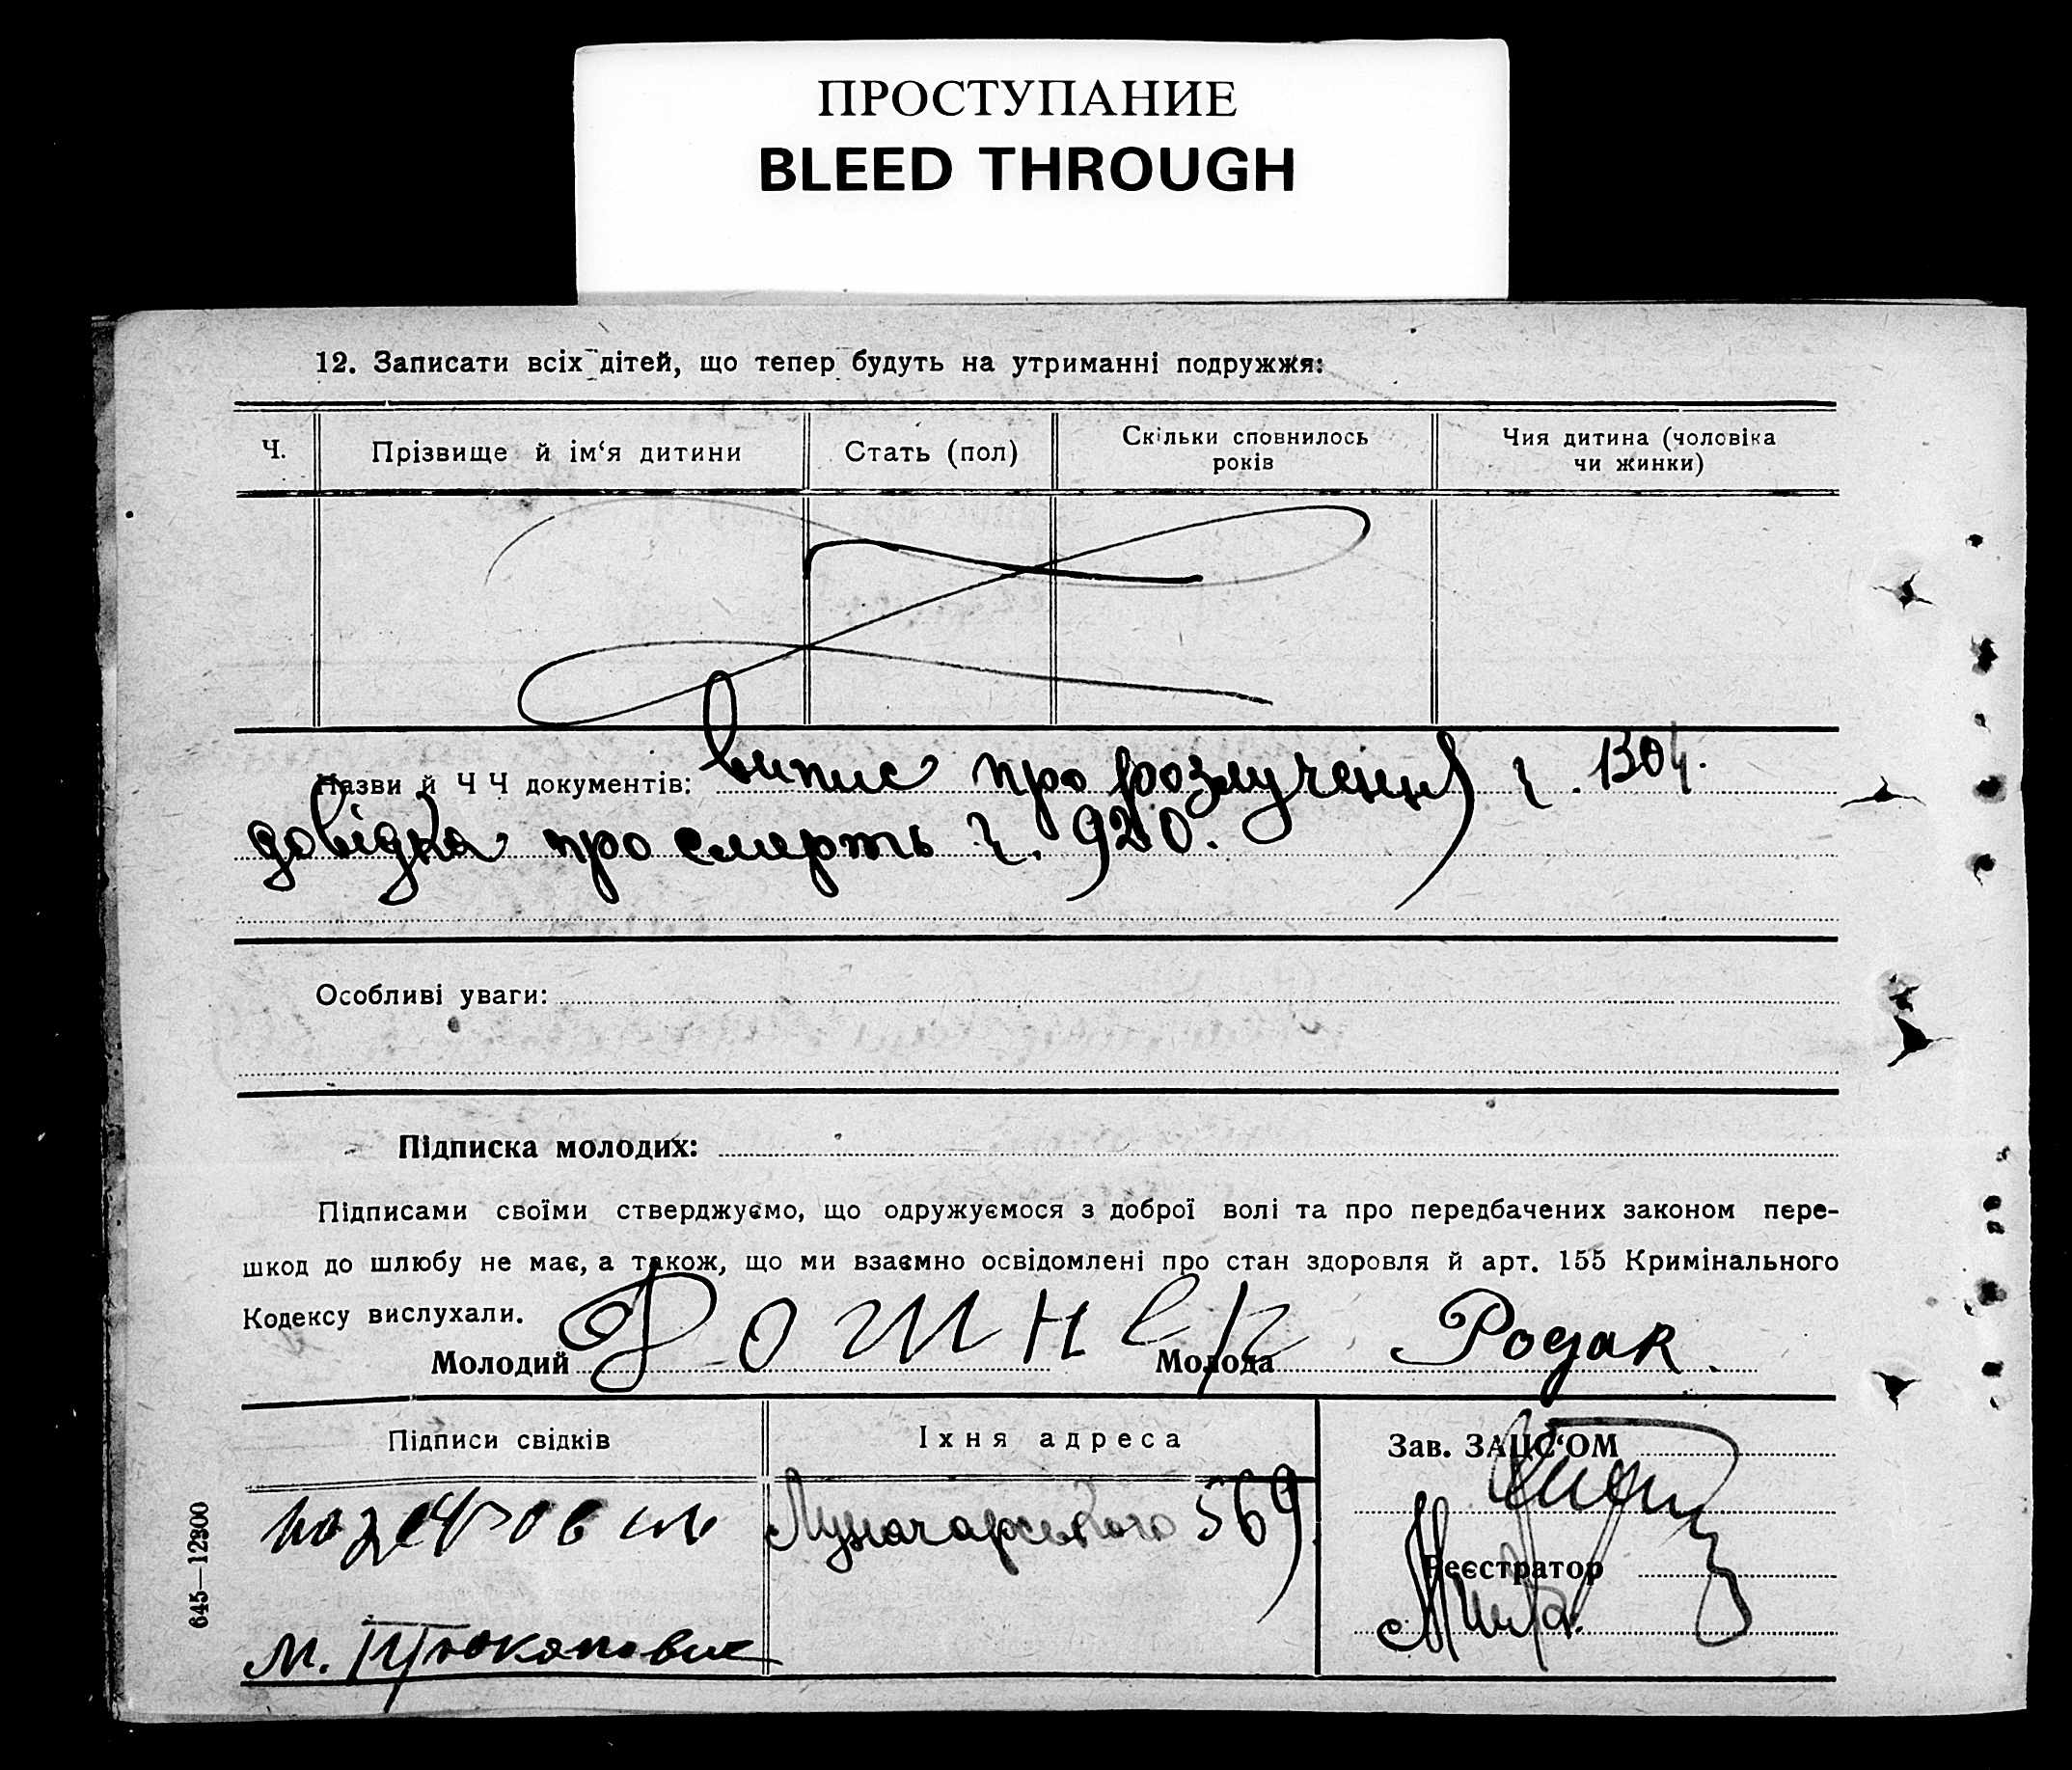 ПРОСТУПАНИЕ
BLEED THROUGH
12. Записати всіх дітей, що тепер будуть на утриманні подружжя:
Ч.
Прізвище й ім‘я дитини
Стать (пол)
Скільки сповнилось
років
Чия дитина (чоловіка
чи жинки)
Назви й Ч Ч документів: випис про розлучення ч. 1304.
довідка про смерть ч. 920.
Особливі уваги:
Підписка молодих:
Підписами своїми стверджуємо, що одружуємося з доброї волі та про передбачених законом пере-
шкод до шлюбу не має, а також, що ми взаємно освідомлені про стан здоровля й арт. 155 Кримінального
Кодексу вислухали.
Молодий Фошнер Молода Родак
Підписи свідків
Їхня адреса
Зав. ЗАЦС‘ОМ
Луначарського 569
Реєстратор
М.
645—12300